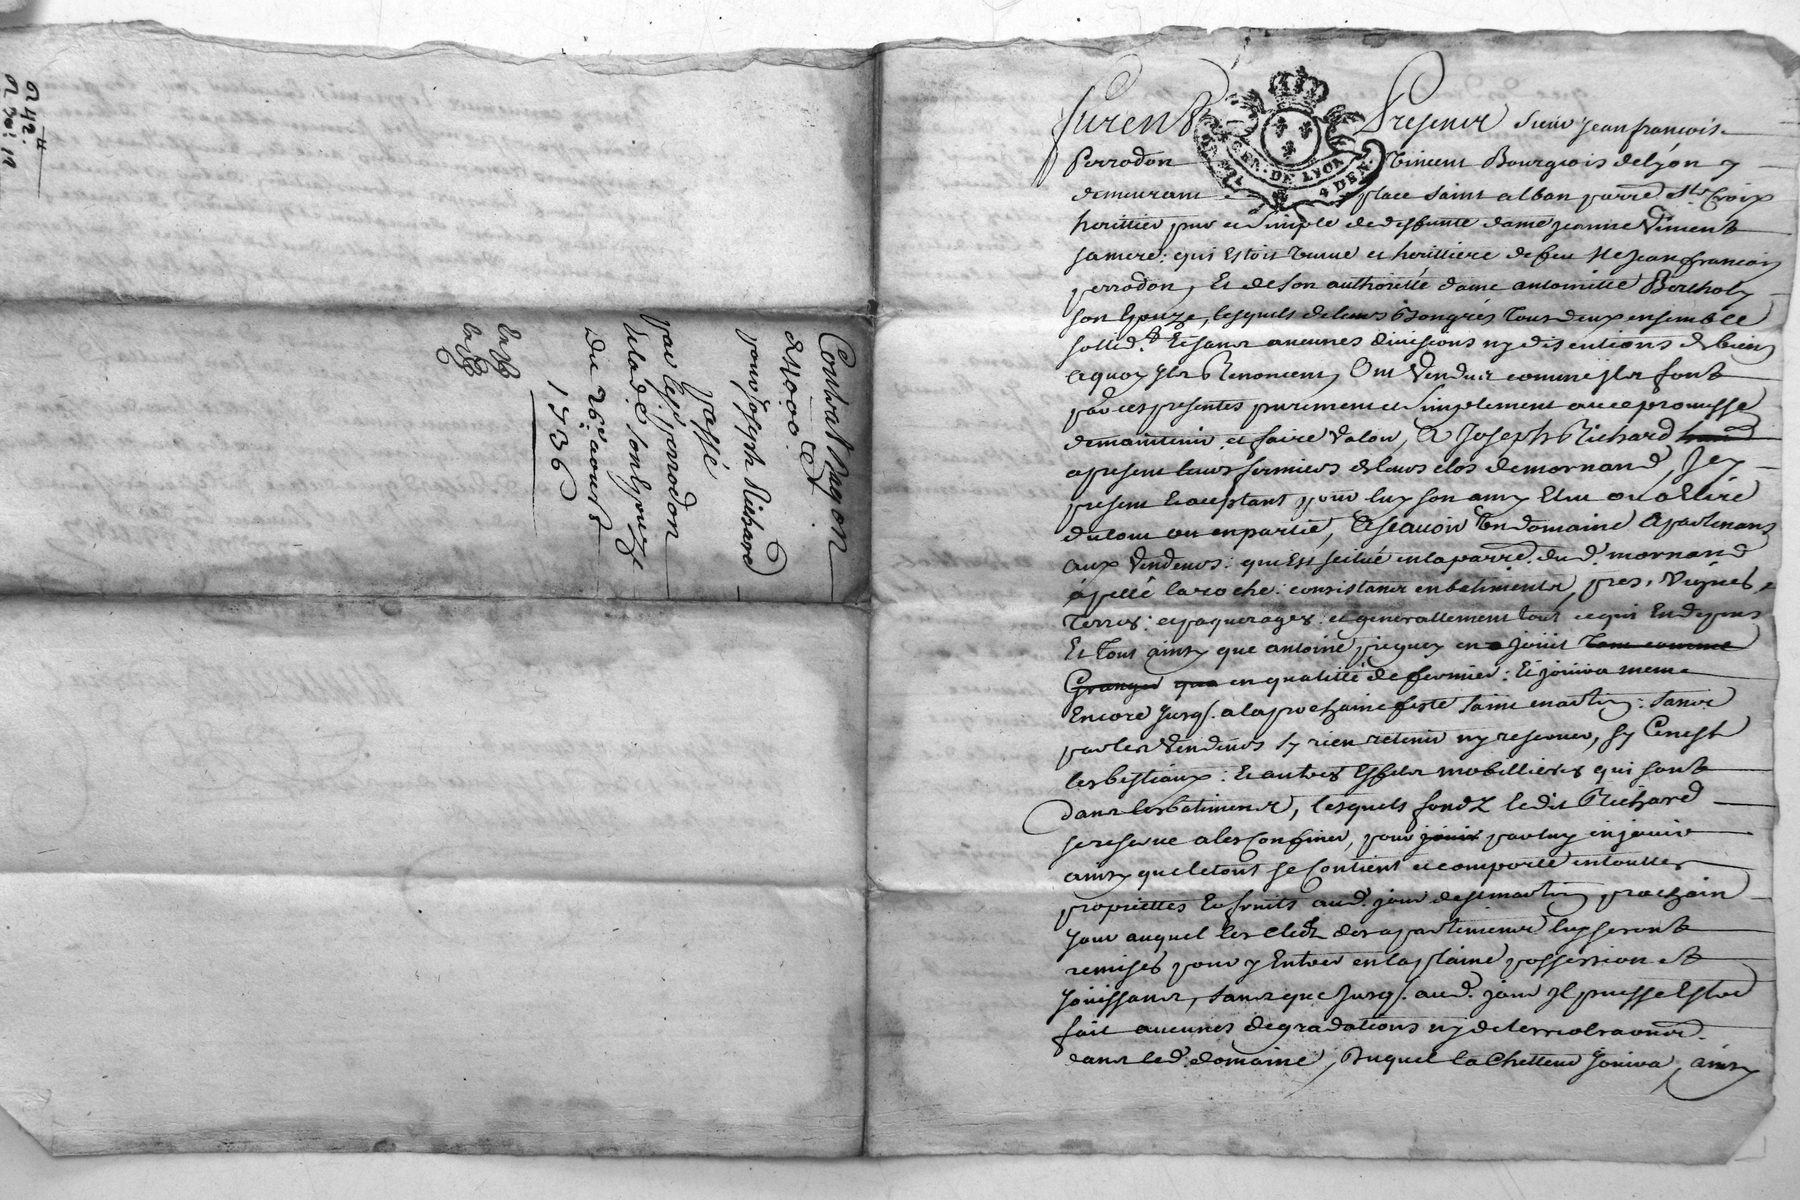 a 42 ll
a 30: 19
Contrat
2400
pour Joseph Richard
passé
par le sr perrodon
et la de son Epouze
Du 26e aoust
1736
furent Presens Sieur Jean françois
Perrodon Vincent Bourgeois de Lyon y
demeurant place Saint alban parre Ste Croix
heritier pur et Simple de deffunte dame jeanne Vincent
sa mere: qui Estoit veuve et herittiere de feu Me Jean francois
perrodon, Et de son authorité dame antoinette Berthol
son Epouze, lesquels de leurs Bongrés tous deux ensemble
sollid.t Et sans aucunes divisions ny discutions de biens
a quoy Ils Renoncent, Ont Vendu comme ils font
par ces presentes purement et Simplement avec promesse
de maintenir et faire valoir, A Joseph Richard
a present leurs fermiers de leurs clos de mornand, Icy
present Et aceptant pour luy son amy Elu ou a Elire
du tout ou en partie, Ascavoir Un domaine Apartenant
aux Vendeurs: que Est scitué en la parre. du d. mornand
apellé la roche: consistant en batiments, pres, vignes,
Terres: et paquerages: et generallement tout ce qui En depens
Et tout ainsy que antoine piquey en a joüit tout comme
Granger que en qualitté de fermier: Et joüira meme
Encore Jusq. a la prochaine feste saint martin: sans
par les Vendeurs sy rien retenir ny reserver, sy Cenest
les bestiaux: et autres Effets mobilliers qui sont
dans les batiments, lesquels fondz le dit Richard
se reserve a les Confiner, pour jouir par luy en joüir
ainsy que le tout se Contient et comporte en touttes
proprietes Et fruits aud. jour de st martin prochain
Jour auquel les Clefz des apartements luy seront
remises pour y Entrer en la plaine possession et
Joüissance, sans que Jusq. aud. jour Il puisse Estre
fait aucunes degradations ny deterriorations
dans led. domaine, Duquel la Chetteur Joüira, ainsy
GEN. DE LYON
4 DEN.